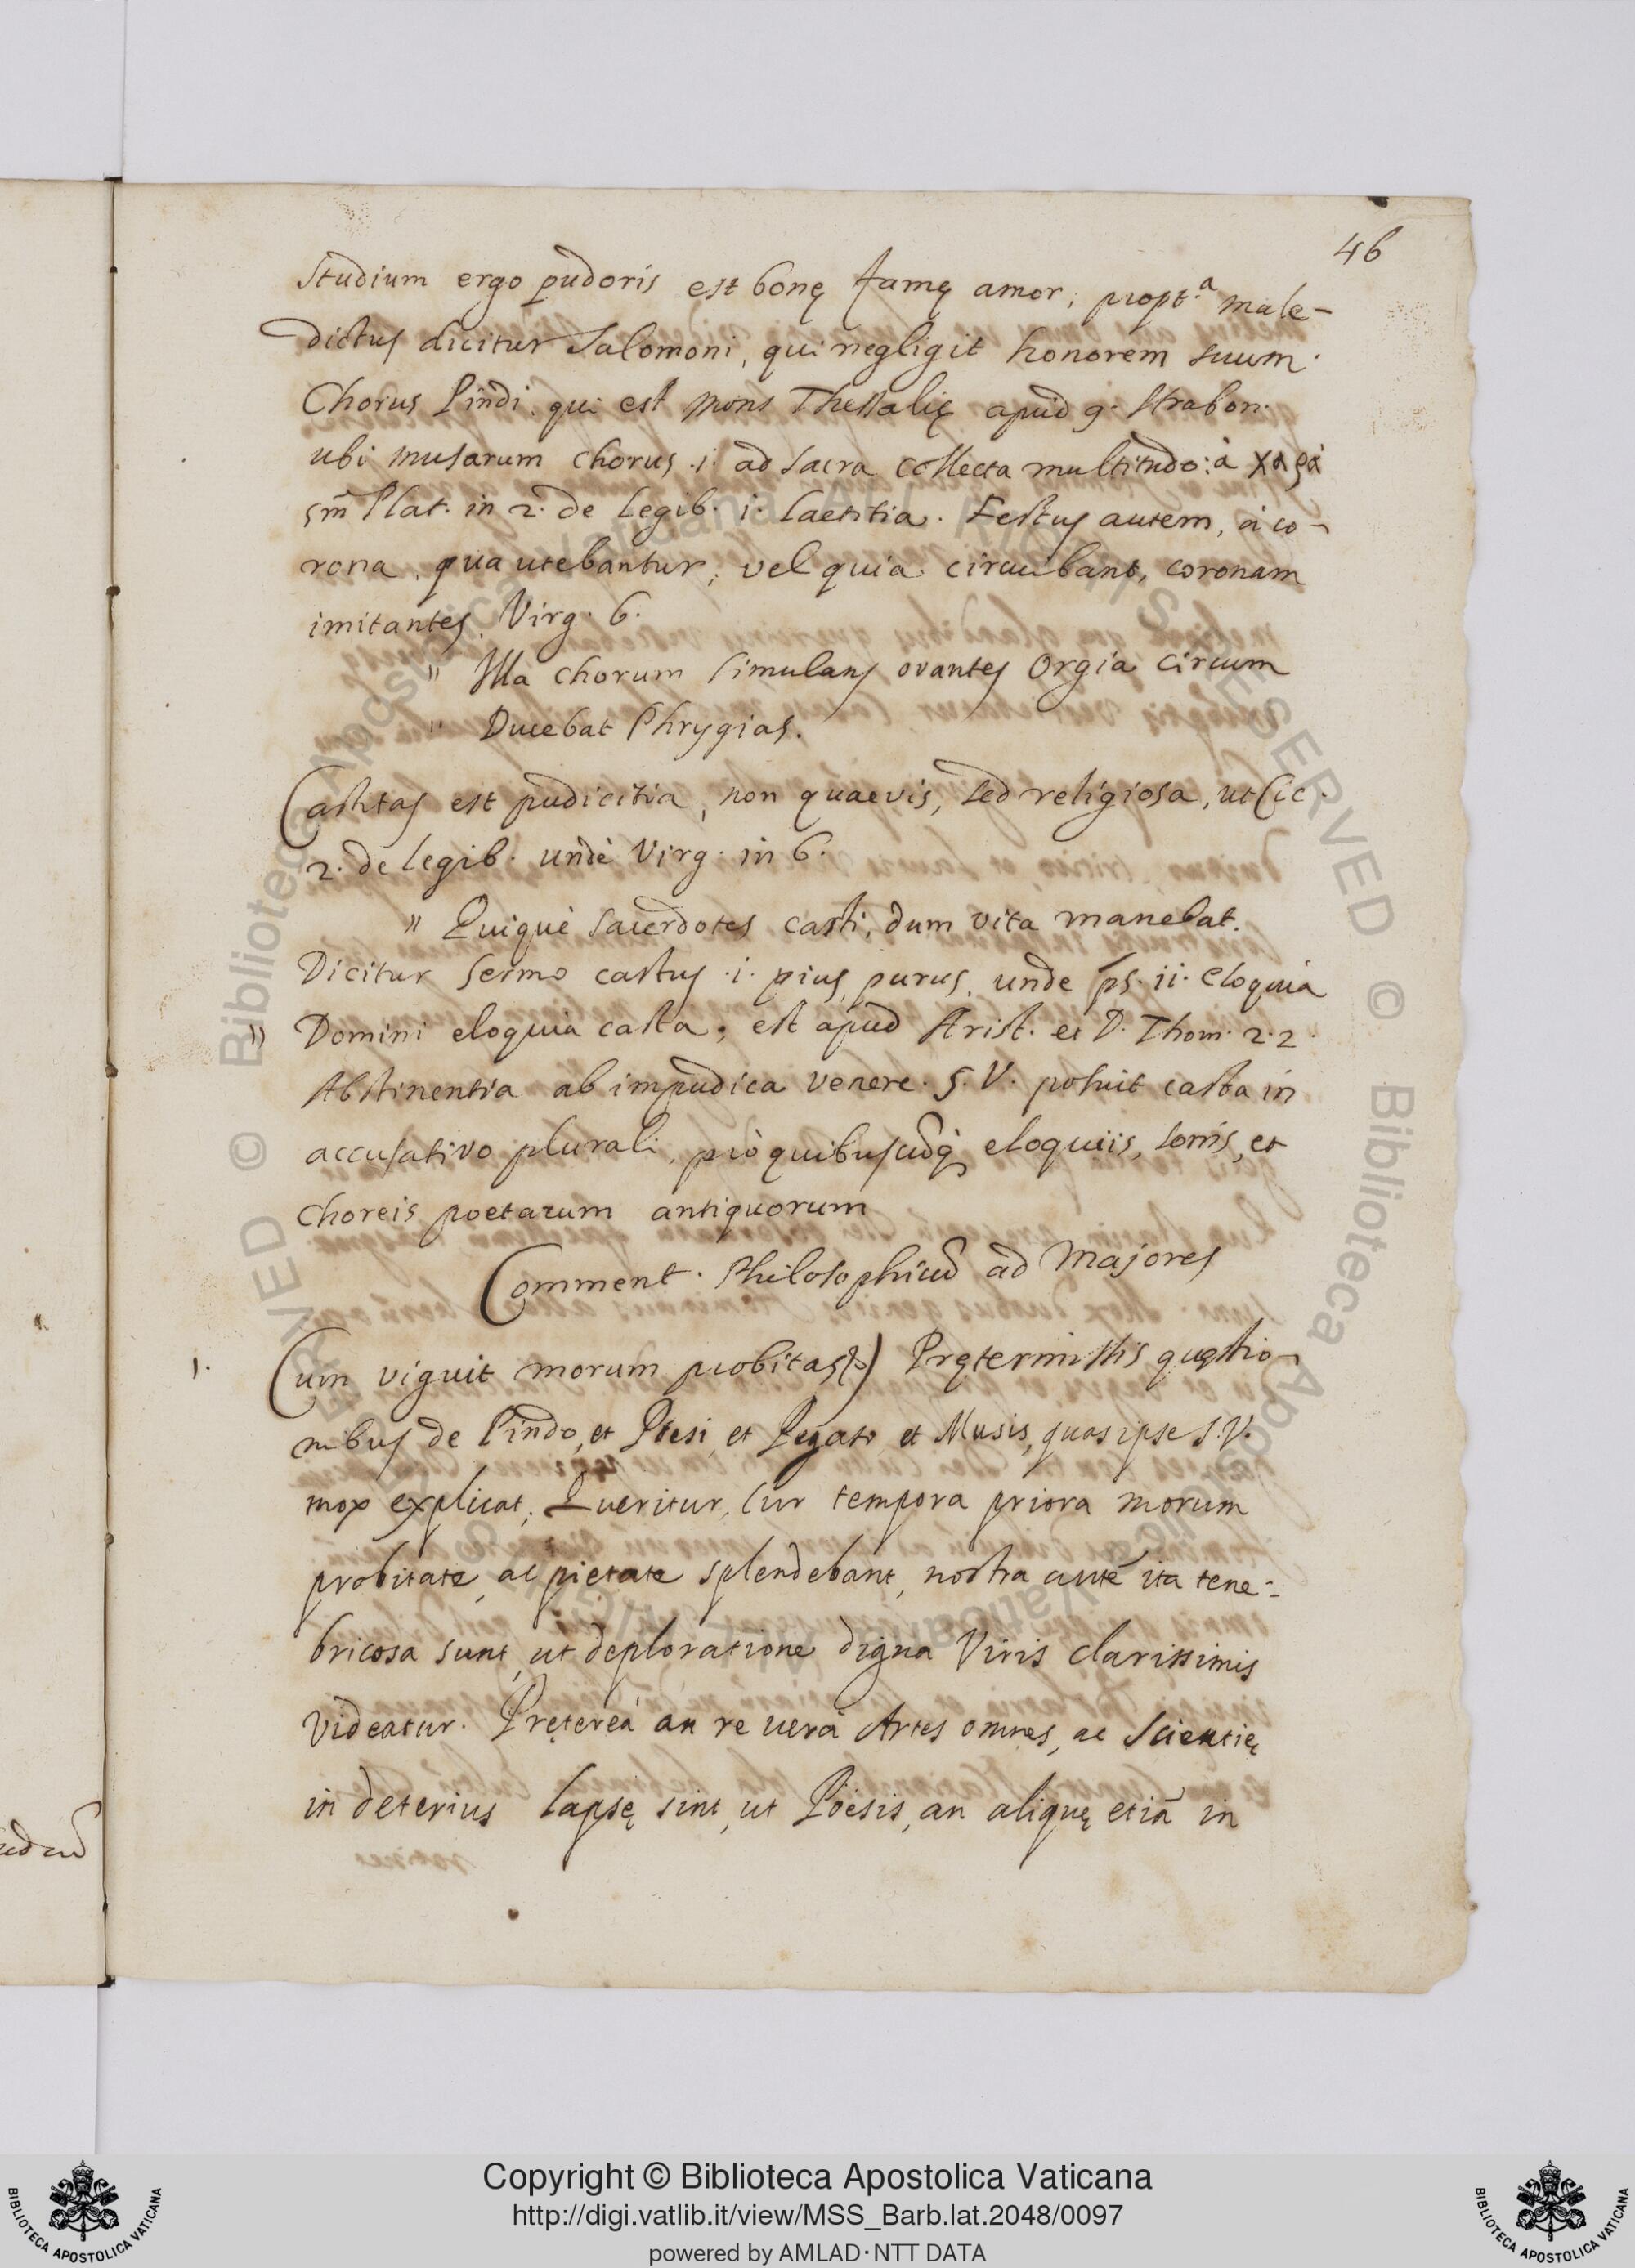 46
Studium ergo pudoris est bonę famę amor, propt.ᵃ male-
dictus dicitur Salomoni, qui negligit honorem suum.
Chorus Pindi, qui est mons Thessalię apud 9. Strabon.
ubi musarum chorus .i. ad sacra collecta multitudo: à χαρὰ
sm̃ Plat. in 2. de legib. i. laetitia. Festus autem, à co-
rona, qua utebantur; vel quia circuibant, coronam
imitantes. Virg. 6.
" Illa chorum simulans ovantes Orgia circum
" Ducebat Phrygias.
Castitas est pudicitia, non quaevis, sed religiosa, ut Cic.
2. de legib. undè Virg. in 6.
" Quiquè sacerdotes casti, dum vita manebat.
Dicitur sermo castus .i. pius, purus, unde ps. ii. eloquia
" Domini eloquia casta; est apud Arist. et D. Thom. 2. 2.
Abstinentia ab impudica venere. S. V. posuit casta in
accusativo plurali, prò eloquiis, et
choreis poetarum antiquorum
Comment. ad Majores
1. Cum viguit morum probitas &) Prętermissis quęstio-
nibus de Pindo, et Pöesi, et Pegaso et Musis, quas ipse S. V.
mox explicat; Quęritur, cur tempora priora morum
probitate, ac pietate splendebant, nostra autẽ ita tene-
bricosa sunt, ut deploratione digna Viris clarissimis
videatur. Pręterèa an re verà Artes omnes, ac Scientię
in deterius lapsę sint, ut Pöesis, an aliquę etiã in
Copyright © Biblioteca Apostolica Vaticana
http://digi.vatlib.it/view/MSS_Barb.lat.2048/0097
powered by AMLAD·NTT DATA
BIBLIOTECA APOSTOLICA VATICANA
BIBLIOTECA APOSTOLICA VATICANA